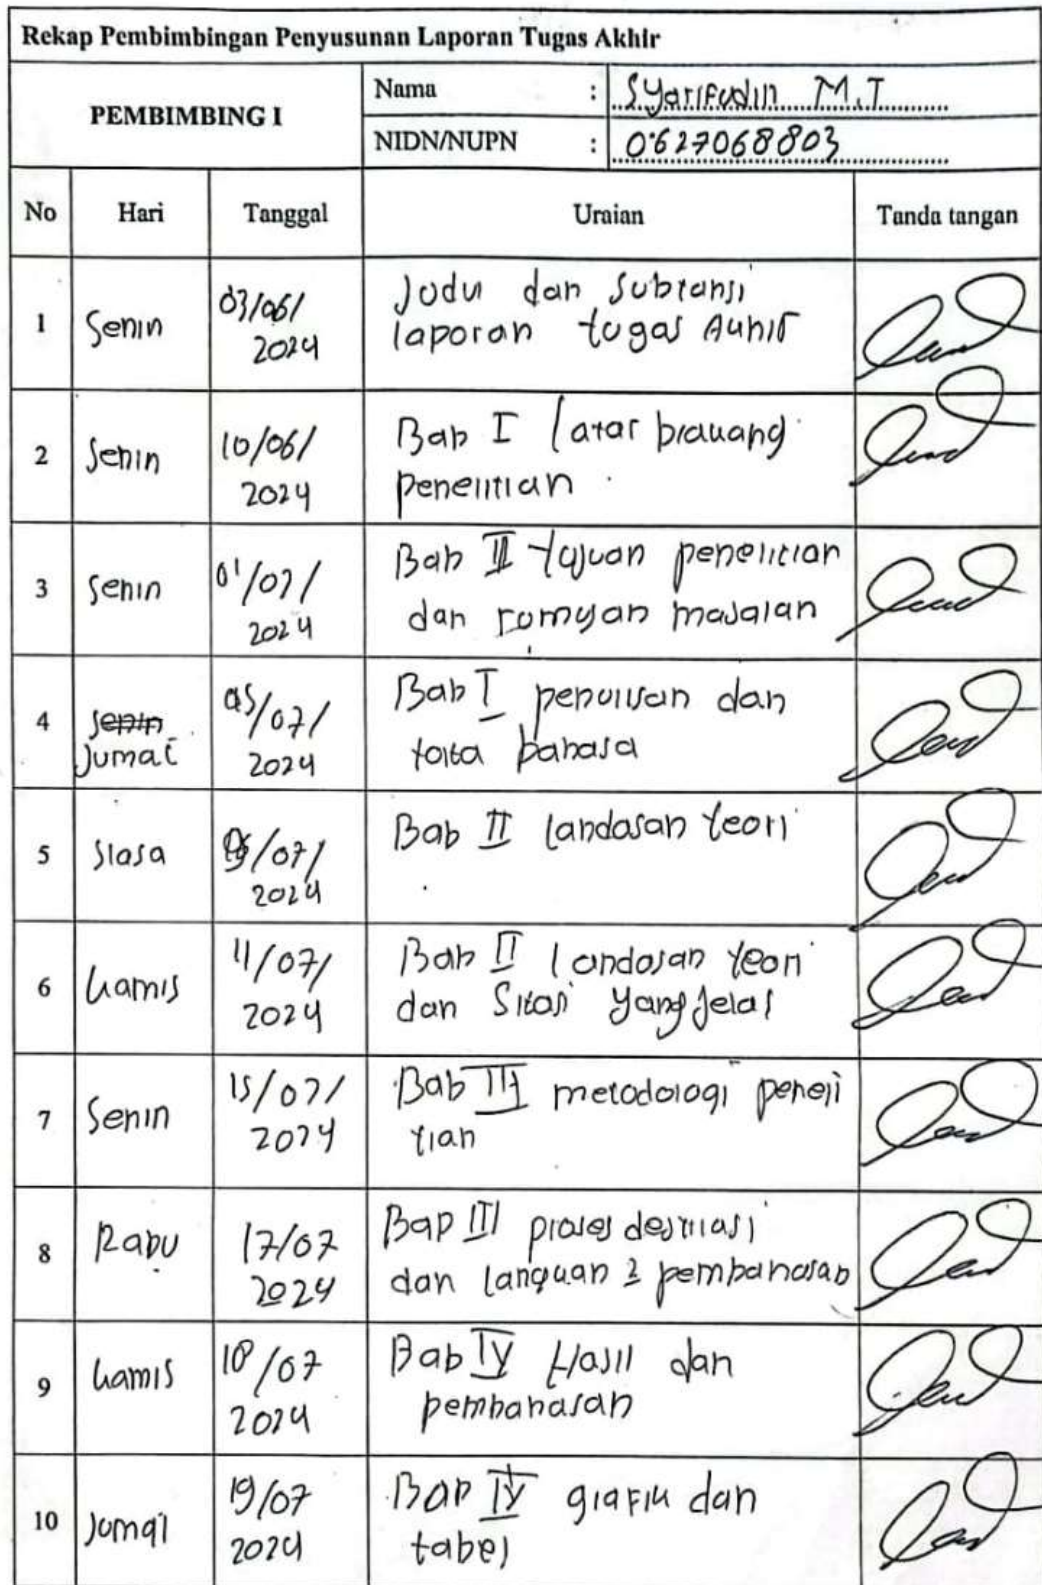 Rekap Pembimbingan Penyusunan Laporan Tugas Akhir
PEMBIMBING I
Nama : Syarifudin M.T
NIDN/NUPN : 0627068803
No Hari Tanggal Uraian Tanda tangan
1 Senin 03/06/ Judul dan Subtansi
2024 laporan tugas Akhir
2 Senin 10/06/ Bab I latar blakang
2024 penelitian
3 Senin 01/07/ Bab II tujuan penelitian
2024 dan rumusan masalah
4 Senin 05/07/ Bab I penulisan dan
Jumat 2024 tata bahasa
5 Slasa /07/ Bab II landasan teori
2024
6 Kamis 11/07/ Bab II landasan teori
2024 dan Sitasi yang jelas
7 Senin 15/07/ Bab III metodologi peneli
2024 tian
8 Rabu 17/07 Bab III proses destilasi
2024 dan pembahasan
9 Kamis 18/07 Bab IV Hasil dan
2024 pembahasan
10 Jumat 19/07 Bab IV grafik dan
2024 tabel